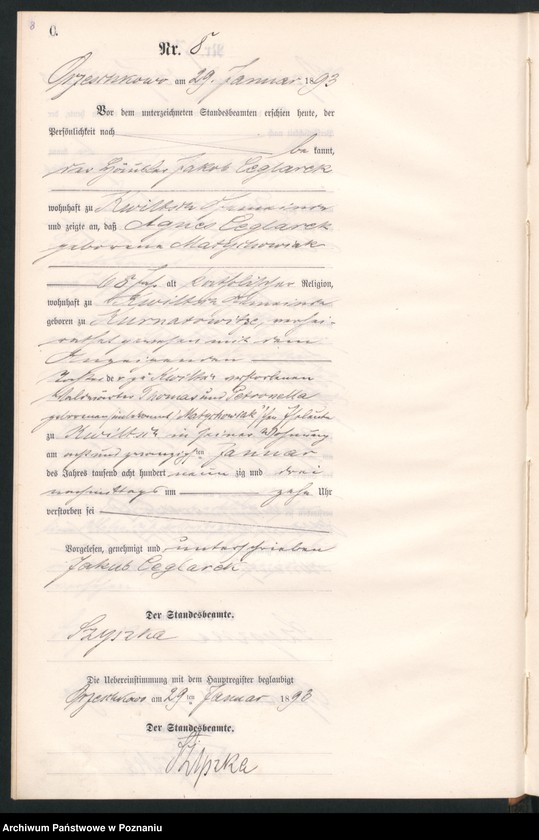 8
C.
Nr. 8
Orzeschkowo am 29. Januar 1893
Vor dem unterzeichneten Standesbeamten erschien heute, der
Persönlichkeit nach
be kannt,
der Häusler Jakob Ceglarek
wohnhaft zu Kwiltsch
und zeigte an, daß Agnes Ceglarek
geborene Matyschowiak
65 J. alt katholischer Religion,
wohnhaft zu Kwiltsch
geboren zu Kurnatowitze, verhei-
rathet gewesen mit dem
Anzeigenden
Tochter der zu Kwiltsch verstorbenen
Thomas und Petronella
geborenen unbekannt Matyschowiak'schen Eheleute
zu Kwiltsch in seiner Wohnung
am acht und zwanzigsten Januar
des Jahres tausend acht hundert neun zig und drei
nachmittags um zehn Uhr
verstorben sei
Vorgelesen, genehmigt und unterschrieben
Jakub Ceglarek
Der Standesbeamte.
Szyszka
Die Uebereinstimmung mit dem Hauptregister beglaubigt
Orzeschkowo am 29 ten Januar 1893
Der Standesbeamte.
Szyszka
Archiwum Państwowe w Poznaniu